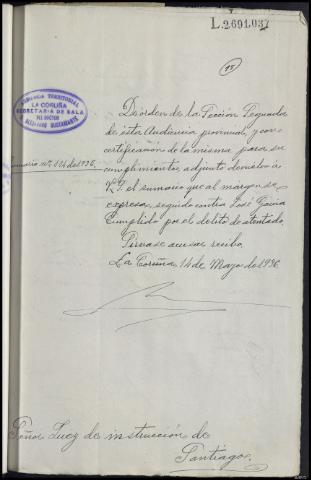 L.2691.037
15
AUDIENCIA TERRITORIAL
LA CORUÑA
SECRETARIA DE SALA
DEL DOCTOR
De órden de la Sección Segunda
de esta Audiencia provincial, y con
certificación de la misma para su
cumplimiento, adjunto devuelvo á
V.S. el sumario que al margen se
expresa, seguido contra José García
Cumplido por el delito de atentado.
Sírvase acusar recibo.
La Coruña, 14 de Mayo de 1936
Sumario nº. 101 de 1936.
Señor Juez de instrucción de
Santiago.